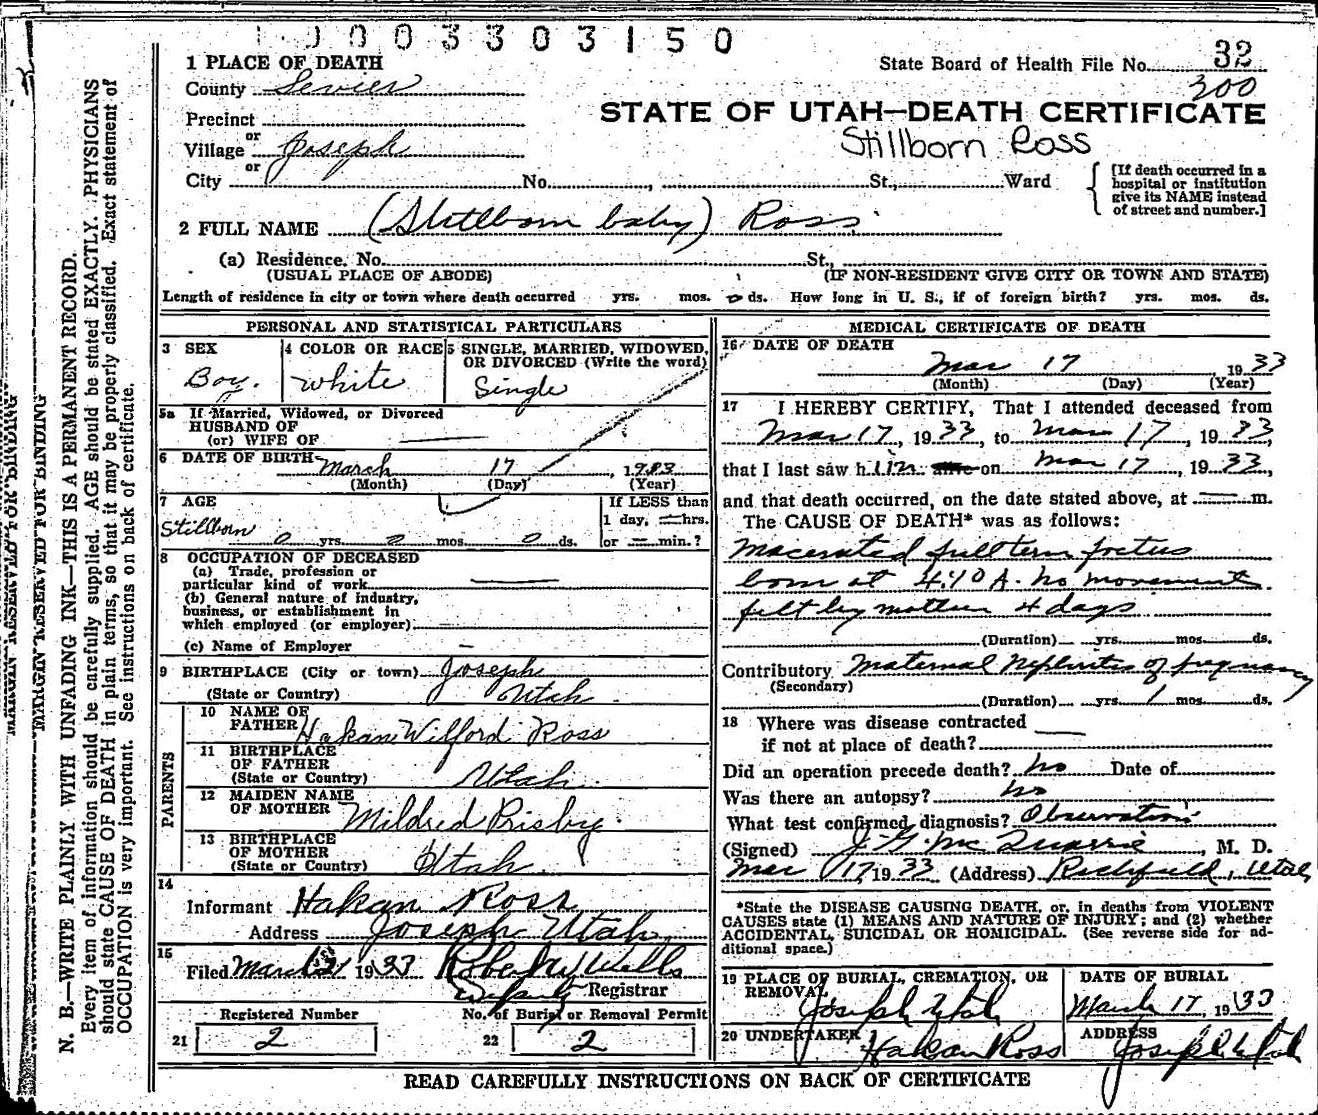 0003303150
1 PLACE OF DEATH
State Board of Health File No. 32
County Sevier
200
STATE OF UTAH—DEATH CERTIFICATE
Precinct
or
Village Joseph
Stillborn Ross
or
City No. , St., Ward
[If death occurred in a hospital or institution give its NAME instead of street and number.]
2 FULL NAME (Stillborn baby) Ross
(a) Residence. No. St.,
(USUAL PLACE OF ABODE) (IF NON-RESIDENT GIVE CITY OR TOWN AND STATE)
Length of residence in city or town where death occurred yrs. mos. ds. How long in U. S., if of foreign birth? yrs. mos. ds.
PERSONAL AND STATISTICAL PARTICULARS
3 SEX
Boy.
4 COLOR OR RACE
White
5 SINGLE, MARRIED, WIDOWED,
OR DIVORCED (Write the word)
Single
5a If Married, Widowed, or Divorced
HUSBAND OF
(or) WIFE OF
6 DATE OF BIRTH March 17, 1933
(Month) (Day) (Year)
7 AGE
If LESS than
1 day, hrs.
or min.?
Stillborn 0 yrs. 0 mos. 0 ds.
8 OCCUPATION OF DECEASED
(a) Trade, profession or
particular kind of work
(b) General nature of industry,
business, or establishment in
which employed (or employer)
(c) Name of Employer
9 BIRTHPLACE (City or town) Joseph
(State or Country) Utah
PARENTS
10 NAME OF
FATHER Hakan Wilford Ross
11 BIRTHPLACE
OF FATHER
(State or Country) Utah
12 MAIDEN NAME
OF MOTHER Mildred Prisby
13 BIRTHPLACE
OF MOTHER
(State or Country) Utah
14
Informant Hakan Ross
Address Joseph Utah
15
Filed March 1933
Wells
Deputy Registrar
Registered Number
21 2
No. of Burial or Removal Permit
22 2
MEDICAL CERTIFICATE OF DEATH
16 DATE OF DEATH
Mar 17, 1933
(Month) (Day) (Year)
17 I HEREBY CERTIFY, That I attended deceased from
Mar 17, 1933, to Mar 17, 1933,
that I last saw him alive on Mar 17, 1933,
and that death occurred, on the date stated above, at m.
The CAUSE OF DEATH* was as follows:
Macerated full term foetus
born at 4:40 A. No movement
felt by mother 4 days
(Duration) yrs. mos. ds.
Contributory Maternal Nephritis of pregnancy
(Secondary)
(Duration) yrs. 1 mos. ds.
18 Where was disease contracted
if not at place of death?
Did an operation precede death? No Date of
Was there an autopsy? No
What test confirmed diagnosis? Observation
(Signed) J. G. McQuarrie, M. D.
Mar 17 1933 (Address) Richfield, Utah
*State the DISEASE CAUSING DEATH, or, in deaths from VIOLENT
CAUSES state (1) MEANS AND NATURE OF INJURY; and (2) whether
ACCIDENTAL, SUICIDAL OR HOMICIDAL. (See reverse side for ad-
ditional space.)
19 PLACE OF BURIAL, CREMATION, OR
REMOVAL
Joseph Utah
DATE OF BURIAL
March 17, 1933
20 UNDERTAKER
Hakan Ross
ADDRESS
Joseph Utah
READ CAREFULLY INSTRUCTIONS ON BACK OF CERTIFICATE
MARGIN RESERVED FOR BINDING
MARGIN RESERVED FOR BINDING
N. B.—WRITE PLAINLY WITH UNFADING INK—THIS IS A PERMANENT RECORD.
Every item of information should be carefully supplied. AGE should be stated EXACTLY. PHYSICIANS
should state CAUSE OF DEATH in plain terms, so that it may be properly classified. Exact statement of
OCCUPATION is very important. See instructions on back of certificate.